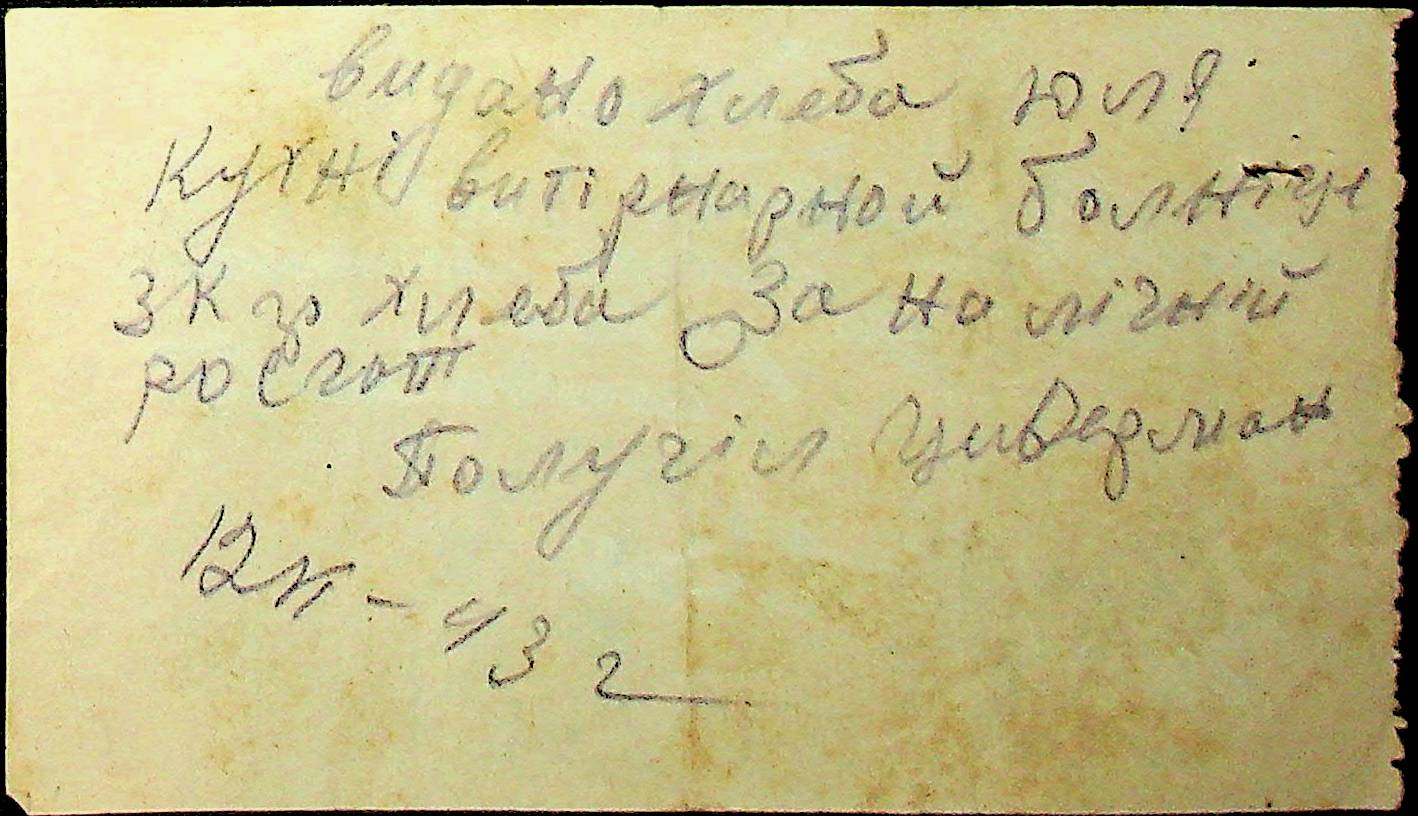 видано хлеба юля
Кухні витірнарной болніци
3 кг хлеба За налічній
росчот
Получіл Цивезман
12/п - 43 г